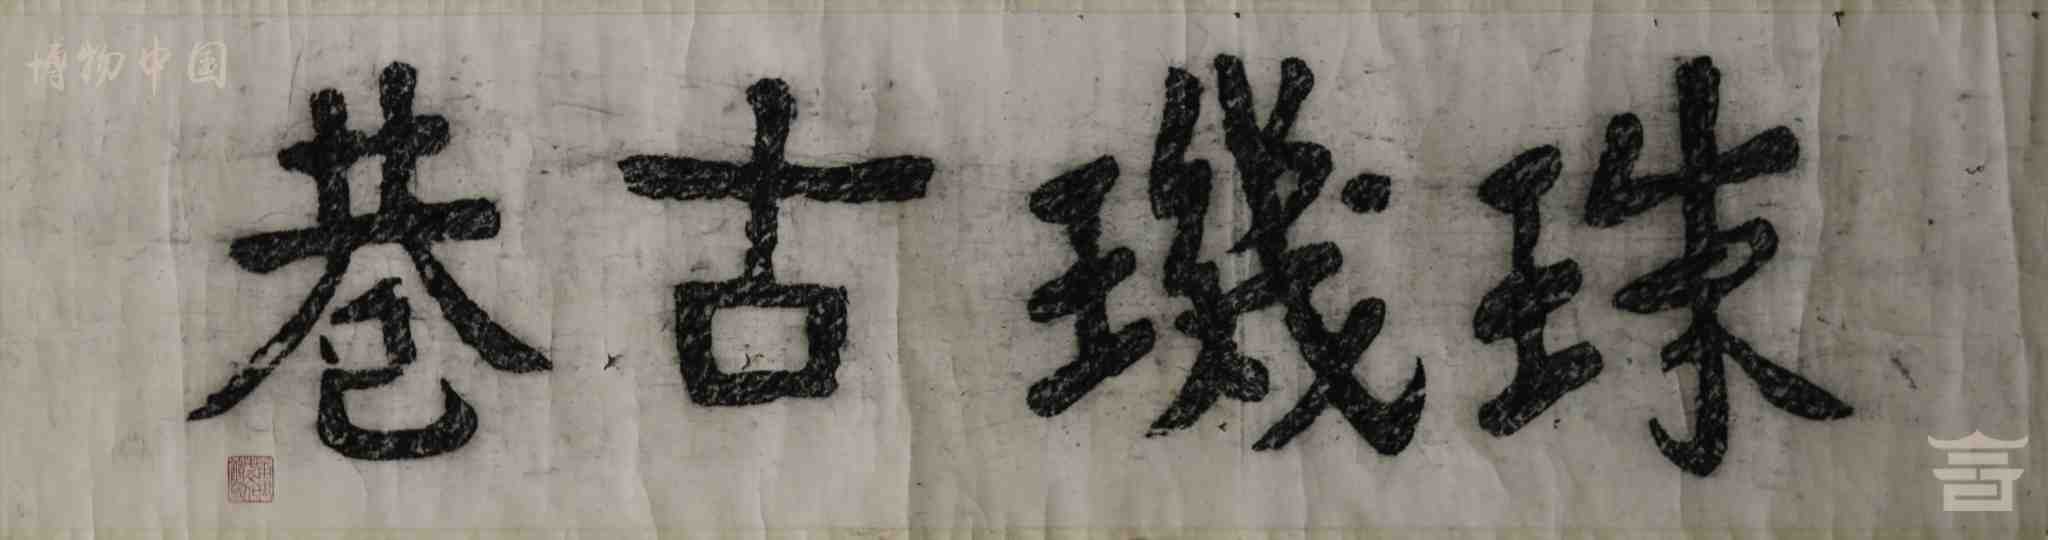 珠璣古巷
博物中国